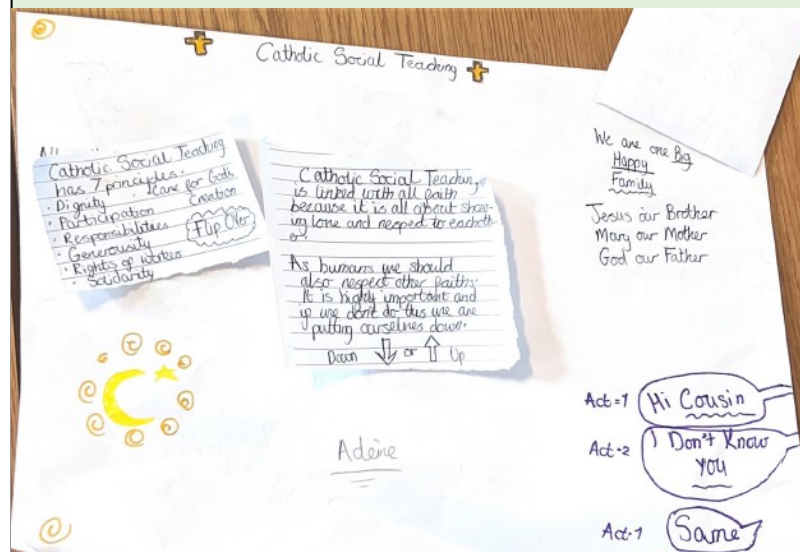 Catholic Social Teaching
Catholic Social Teaching
has 7 principles.
• Dignity
• Care for Gods
Creation
• Participation
• Responsibilities
• Generousity
• Rights of workers
• Solidarity
Flip Over
Catholic Social Teachin,
is linked with all faith
because it is all about show-
ing love and respect to eachoth
er.
As humans we should
also respect other faiths.
It is highly important and
if we don't do this we are
putting ourselves down.
Down or Up
We are one Big
Happy
Family
Jesus our Brother
Mary our Mother
God our Father
Act=1 Hi Cousin
Act=2 I Don't Know
YOU
Act-1 Same